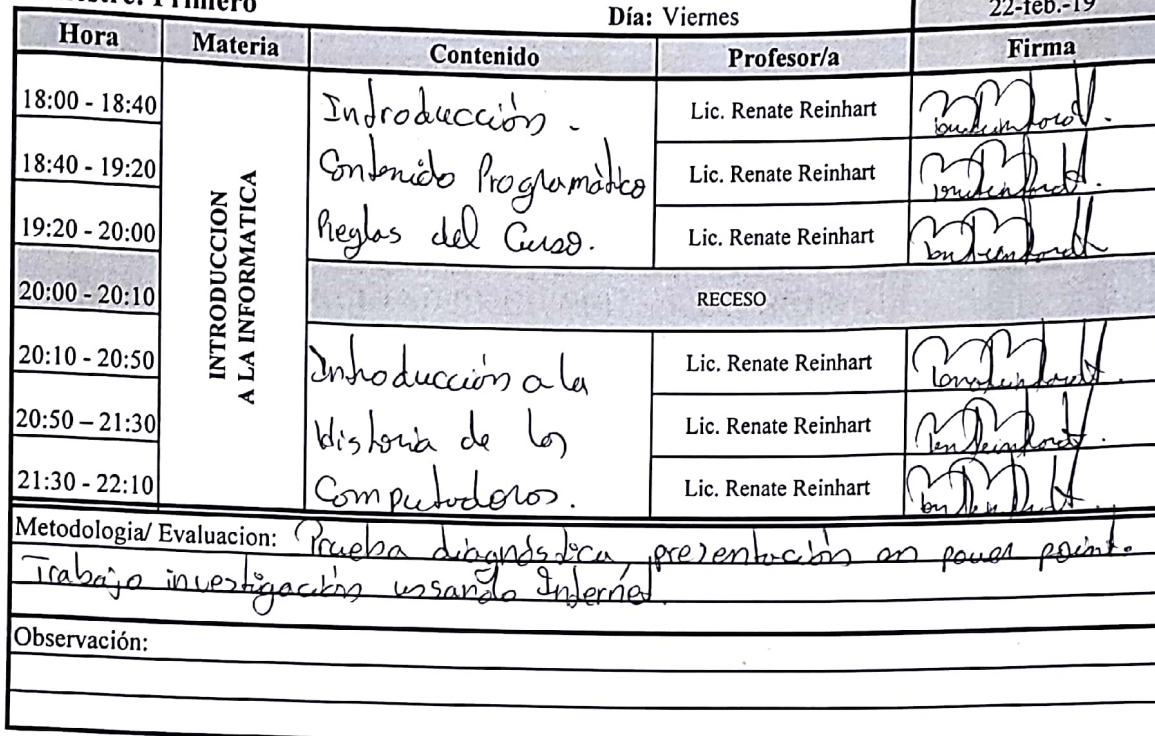 Primero
Día: Viernes
22-feb.-19
Hora Materia Contenido Profesor/a Firma
18:00 - 18:40 Introducción - Lic. Renate Reinhart
18:40 - 19:20 Contenido Programático Lic. Renate Reinhart
19:20 - 20:00 Reglas del Curso. Lic. Renate Reinhart
INTRODUCCION
A LA INFORMATICA
20:00 - 20:10 RECESO
20:10 - 20:50 Introducción a la Lic. Renate Reinhart
20:50 – 21:30 Historia de los Lic. Renate Reinhart
21:30 - 22:10 Computadoras. Lic. Renate Reinhart
Metodologia/ Evaluacion: Prueba diagnóstica, presentación en power point.
Trabajo investigación ussando Internet.
Observación: